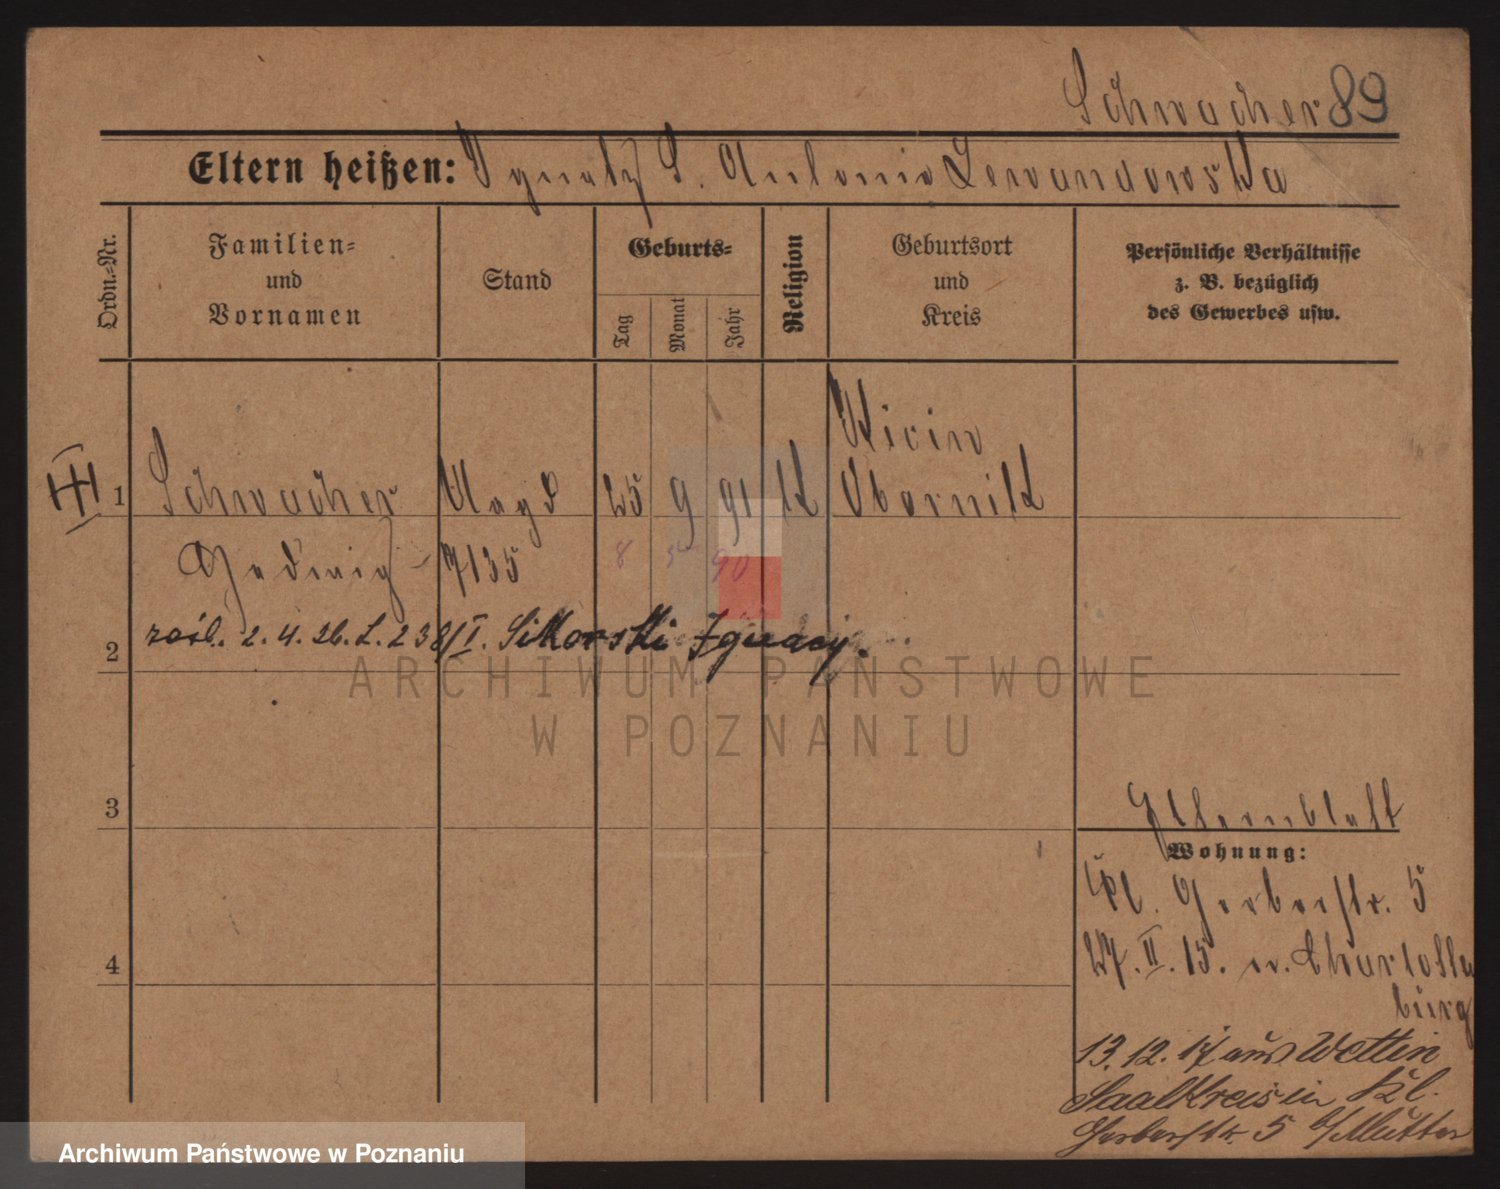 Schwacher 89
Eltern heißen: Ignatz S. Antonie Lewandowska
Ordn.=Nr.
Familien=
und
Vornamen
Stand
Geburts=
Tag
Monat
Jahr
Religion
Geburtsort
und
Kreis
Persönliche Verhältnisse
z. B. bezüglich
des Gewerbes usw.
1
Schwacher Magd 25 9 91 K Kicin
Obornik
Hedwig 7135 8 5 90
2
zaśl. 2.4.26. L. 238/I. Sikorski Ignacy.
ARCHIWUM PAŃSTWOWE
W POZNANIU
3
Elternblatt
Wohnung:
Kl. Gerberstr. 5
4
27. II. 15. n. Charlotten
burg
13.12.17 aus Wettin
Saalkreis in Kl.
Gerberstr. 5 b/Mutter
Archiwum Państwowe w Poznaniu